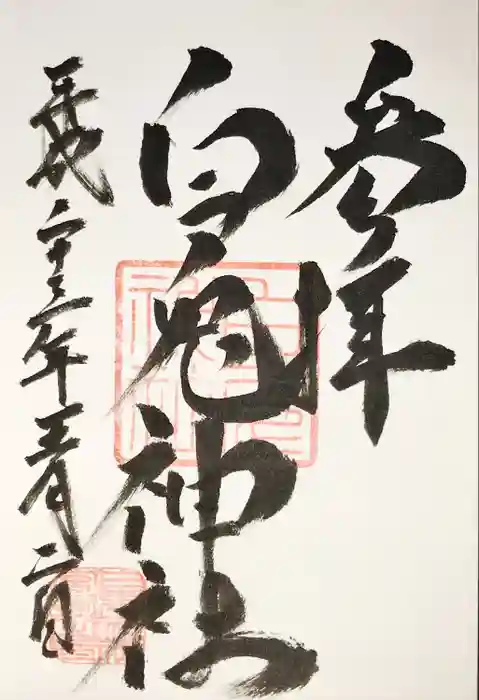 参拝
白兎神社
平成二十三年五月二日